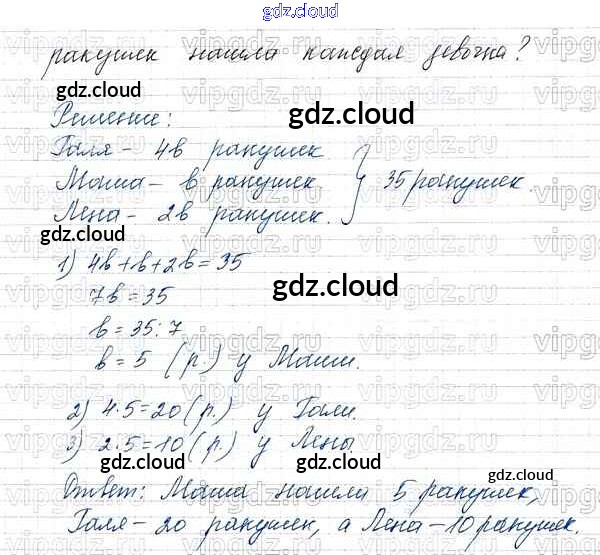 gdz.cloud
ракушек нашла каждая девочка?
Решение:
Галя - 4в ракушек
Маша - в ракушек } 35 ракушек.
Лена - 2в ракушек.
1) 4в+в+2в=35
7в=35
в=35:7
в=5 (р.) у Маши.
2) 4·5=20 (р.) у Гали.
3) 2·5=10 (р.) у Лены.
Ответ: Маша нашли 5 ракушек,
Галя - 20 ракушек, а Лена - 10 ракушек.
gdz.cloud
gdz.cloud
gdz.cloud
gdz.cloud
gdz.cloud
gdz.cloud
gdz.cloud
vipgdz.ru